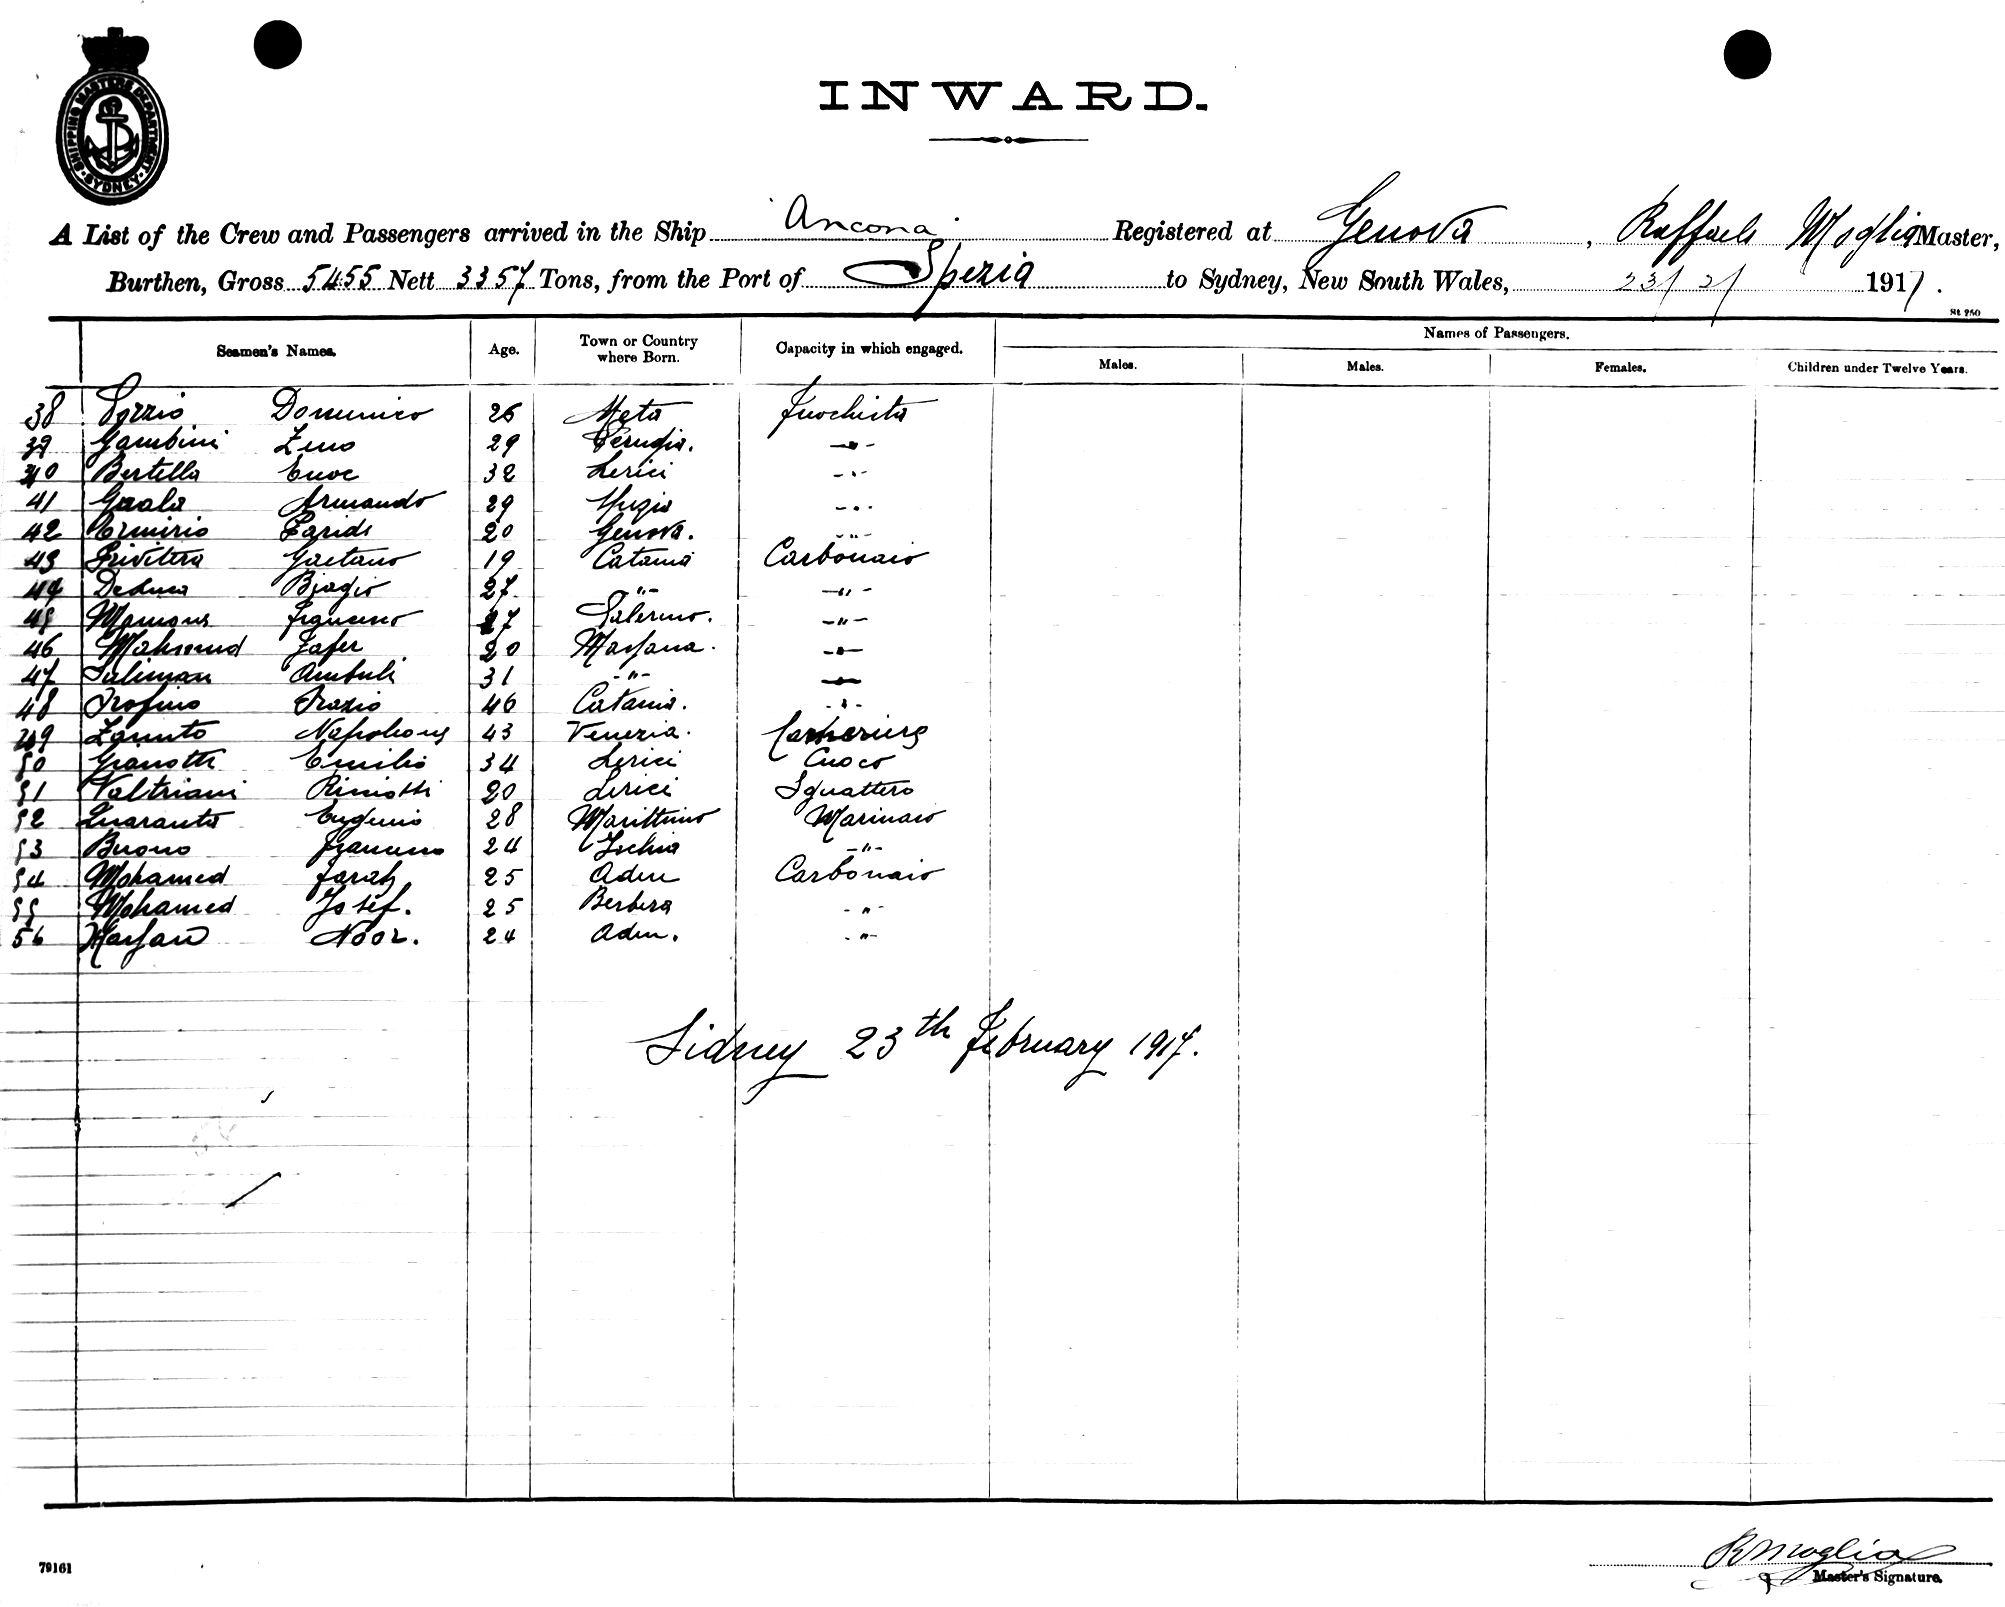 SHIPPING MASTERS DEPARTMENT
SYDNEY
INWARD.
A List of the Crew and Passengers arrived in the Ship Ancona Registered at Genova, Raffaele Moglia Master,
Burthen, Gross 5455 Nett 3357 Tons, from the Port of Spezia to Sydney, New South Wales, 23/2/ 1917.
St 250
Seamen's Names. Age. Town or Country where Born. Capacity in which engaged. Names of Passengers.
Males. Males. Females. Children under Twelve Years.
38 Domenico 26 Meta Fuochista
39 Gambini Zeno 29 Perugia. -"-
40 Bertella Enoc 32 Lerici -"-
41 Armando 29 -"-
42 20 Genova. -"-
43 Privitera Gaetano 19 Catania Carbonaio
44 Deluca Biagio 27 -"- -"-
45 Francesco 27 Palermo. -"-
46 Mahmud Jafer 20 -"-
47 Suliman 31 -"- -"-
48 46 Catania. -"-
49 Napoleone 43 Venezia.
50 Gianotti Emilio 34 Lerici Cuoco
51 Valtriani 20 Lerici Sguattero
52 Quaranta Eugenio 28 Marittimo Marinaio
53 Buono Francesco 24 Ischia -"-
54 Mohamed Farah 25 Aden Carbonaio
55 Mohamed Josef. 25 Berbera -"-
56 Noor. 24 Aden. -"-
Sidney 23th February 1917.
R Moglia
Master's Signature.
79161